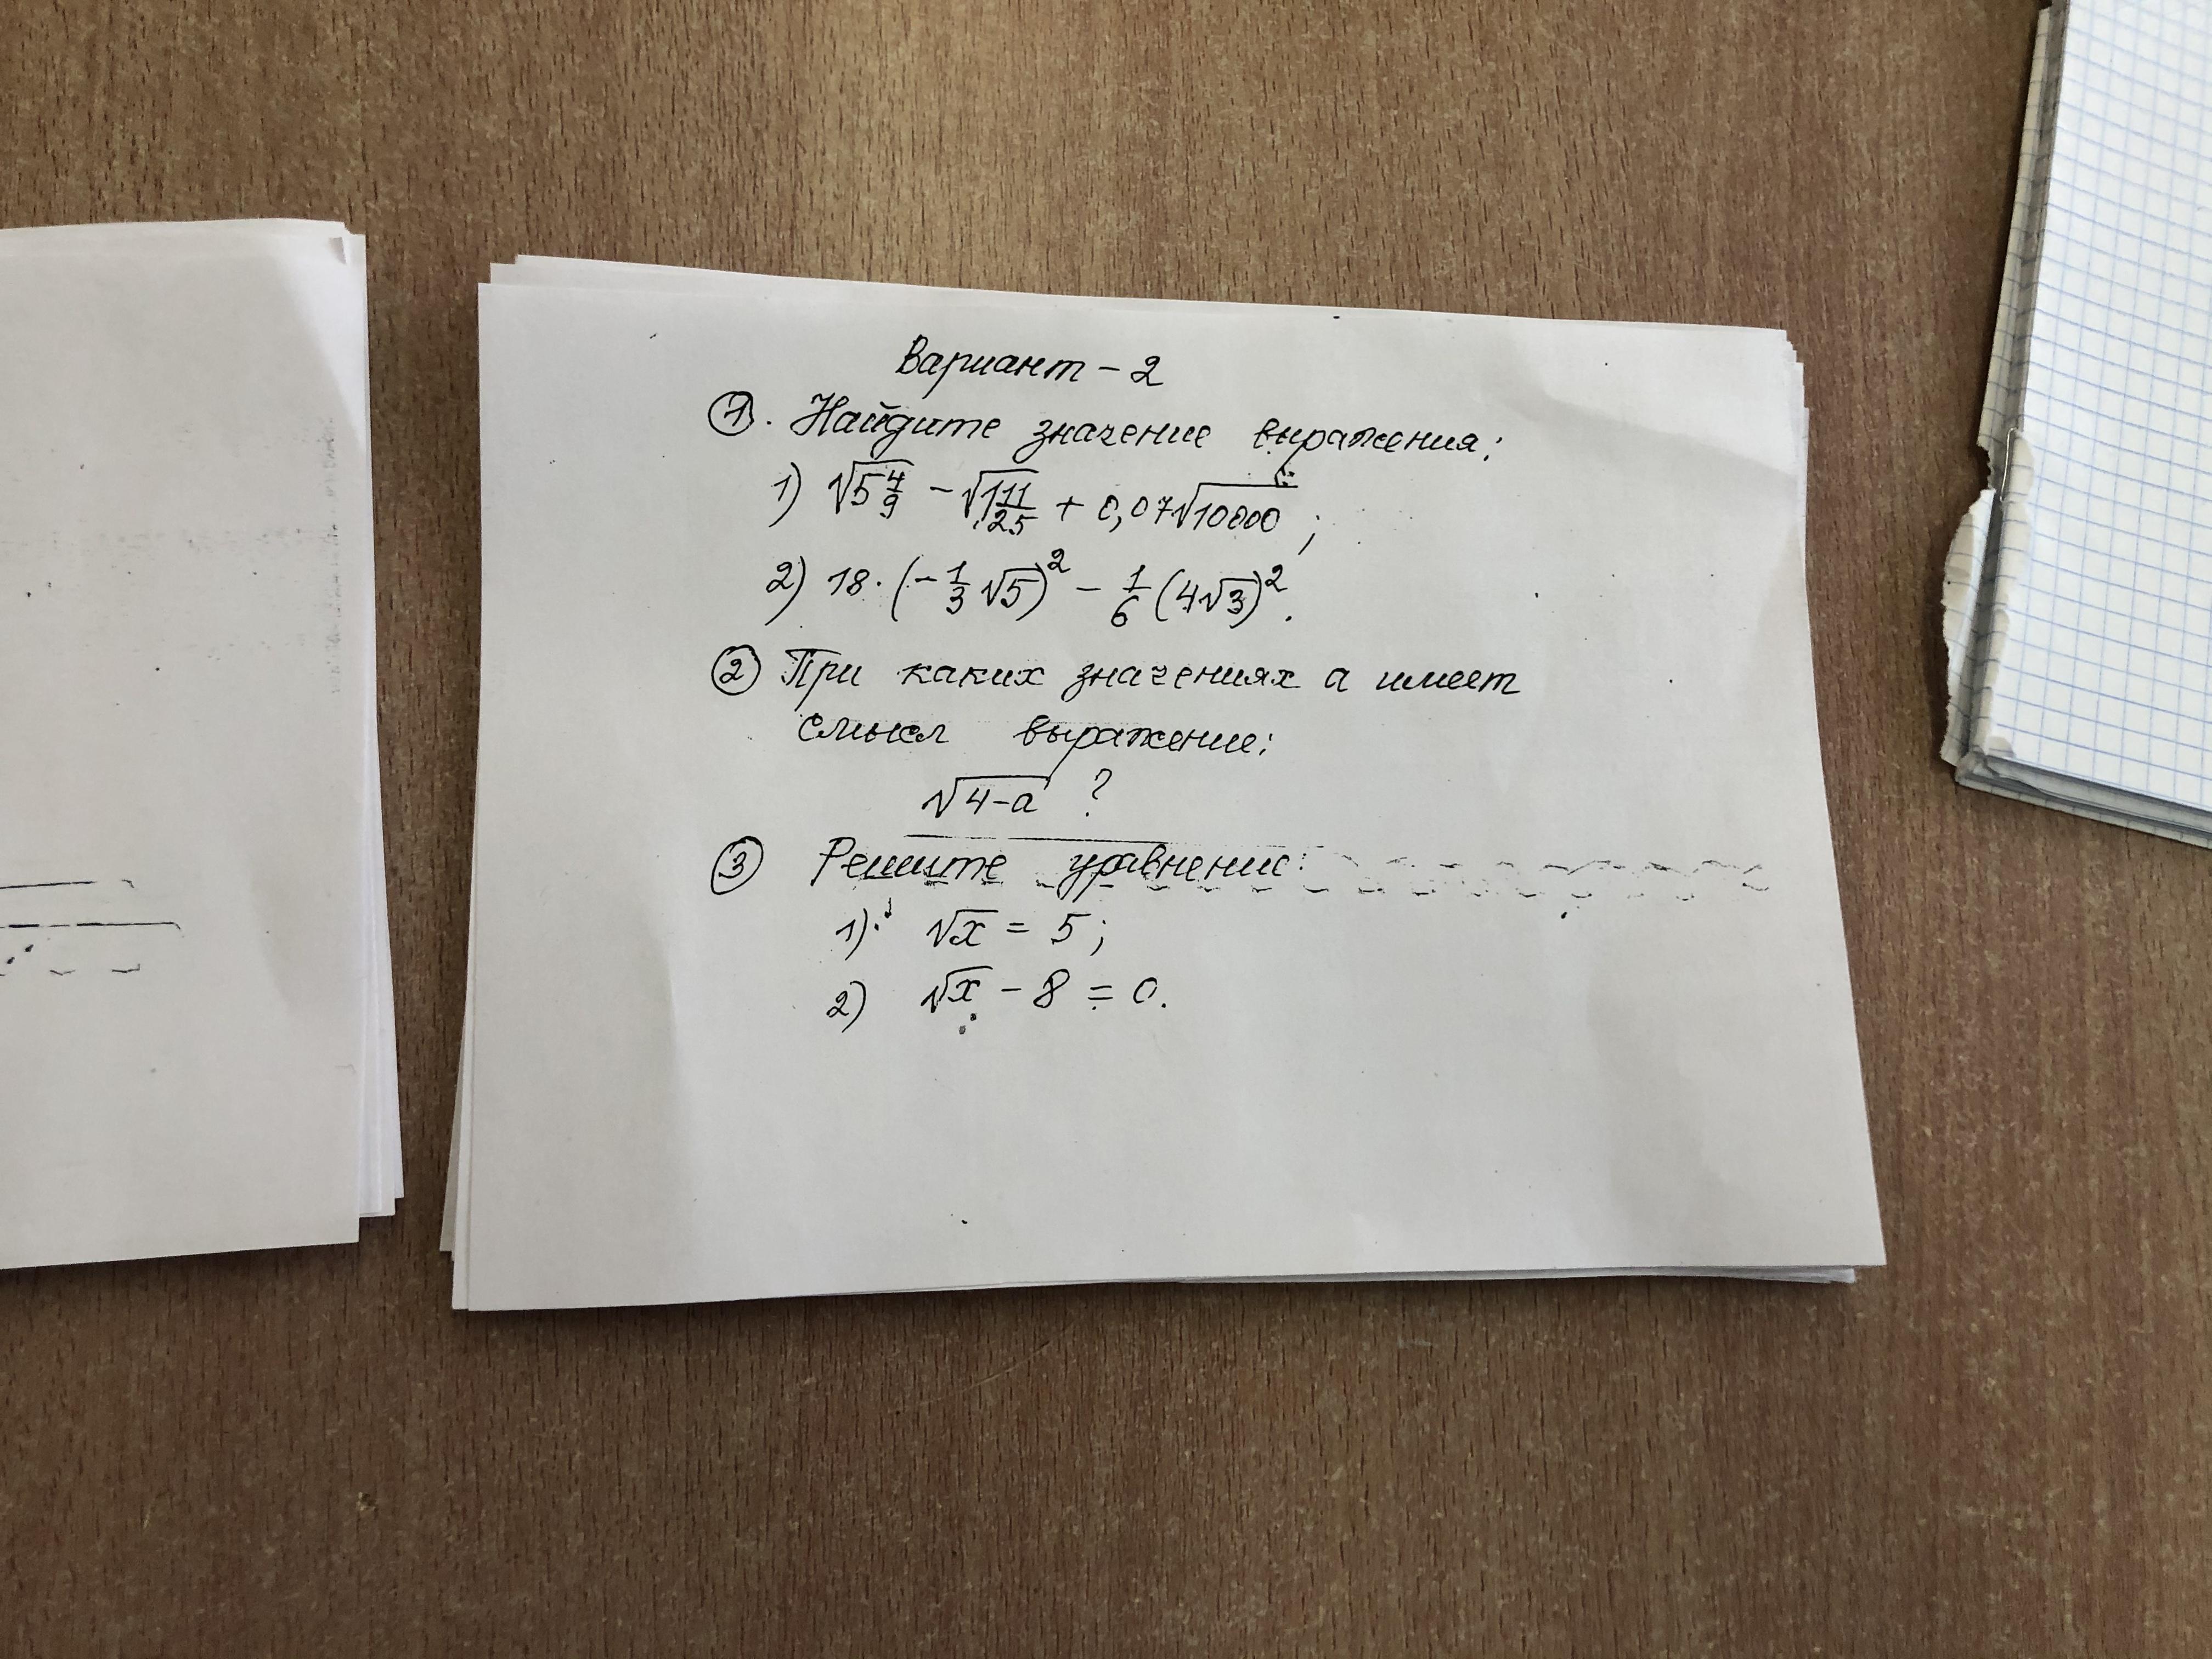 Вариант - 2
1. Найдите значение выражения:
1) √5 4/9 - √1 11/25 + 0,07√10000 ;
2) 18·(-1/3 √5)² - 1/6 (4√3)².
2 При каких значениях а имеет
смысл выражение:
√4-а ?
3 Решите уравнение:
1). √x = 5;
2) √x - 8 = 0.